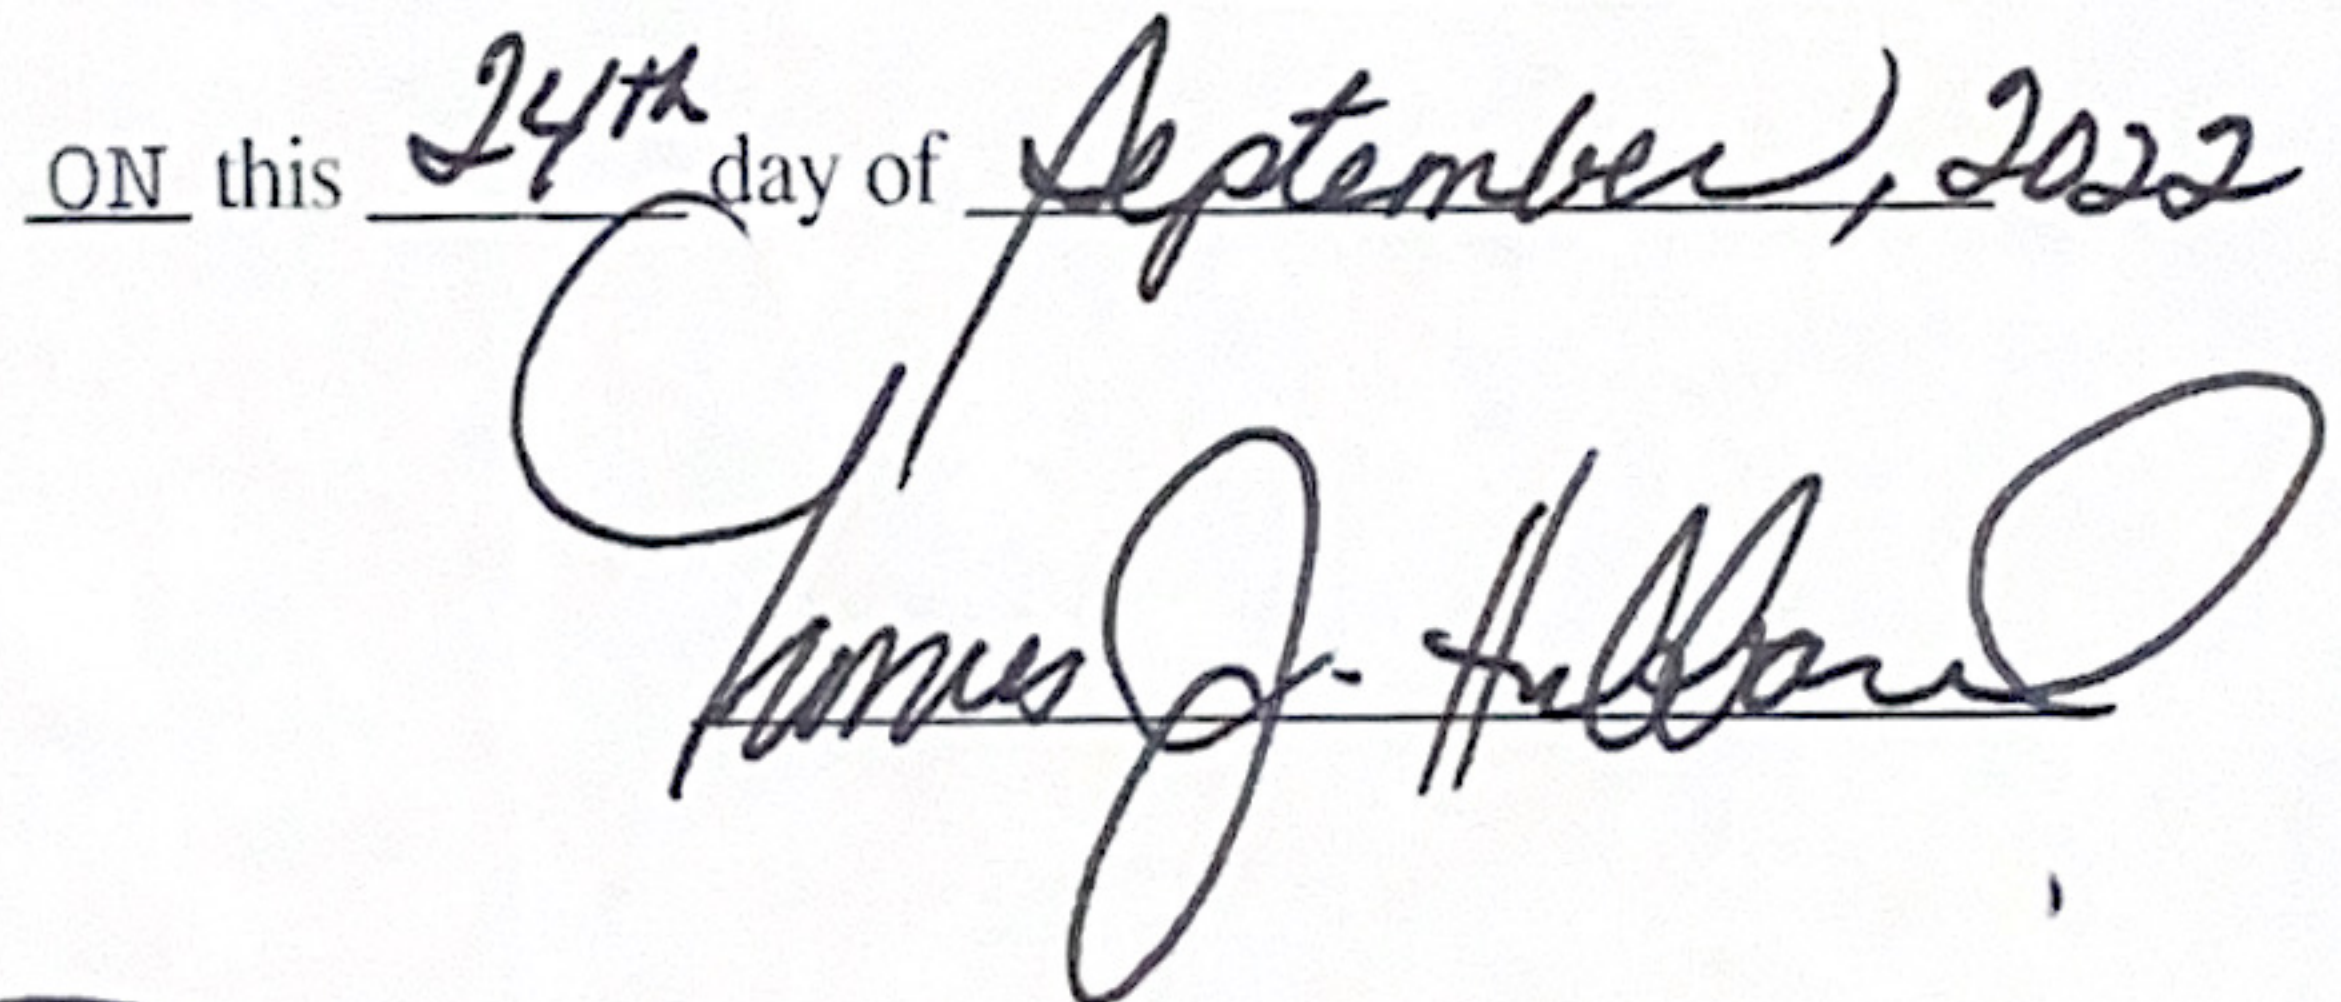 ON this 24th day of September, 2022
James J. Hubbard